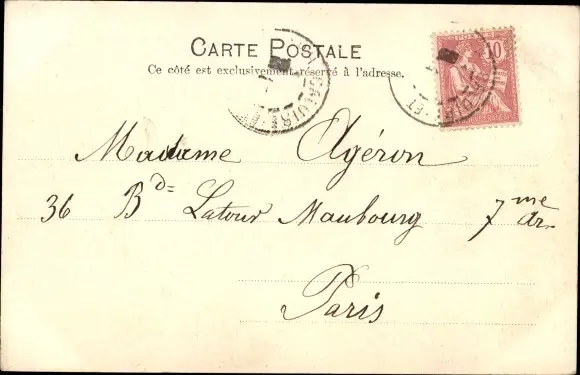 CARTE POSTALE
Ce côté est exclusivement réservé à l'adresse.
10
Madame Agéron
36 Bd Latour Maubourg 7me ar.
Paris